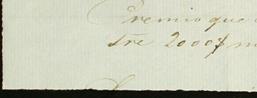 Premio que
tre 2000$ m